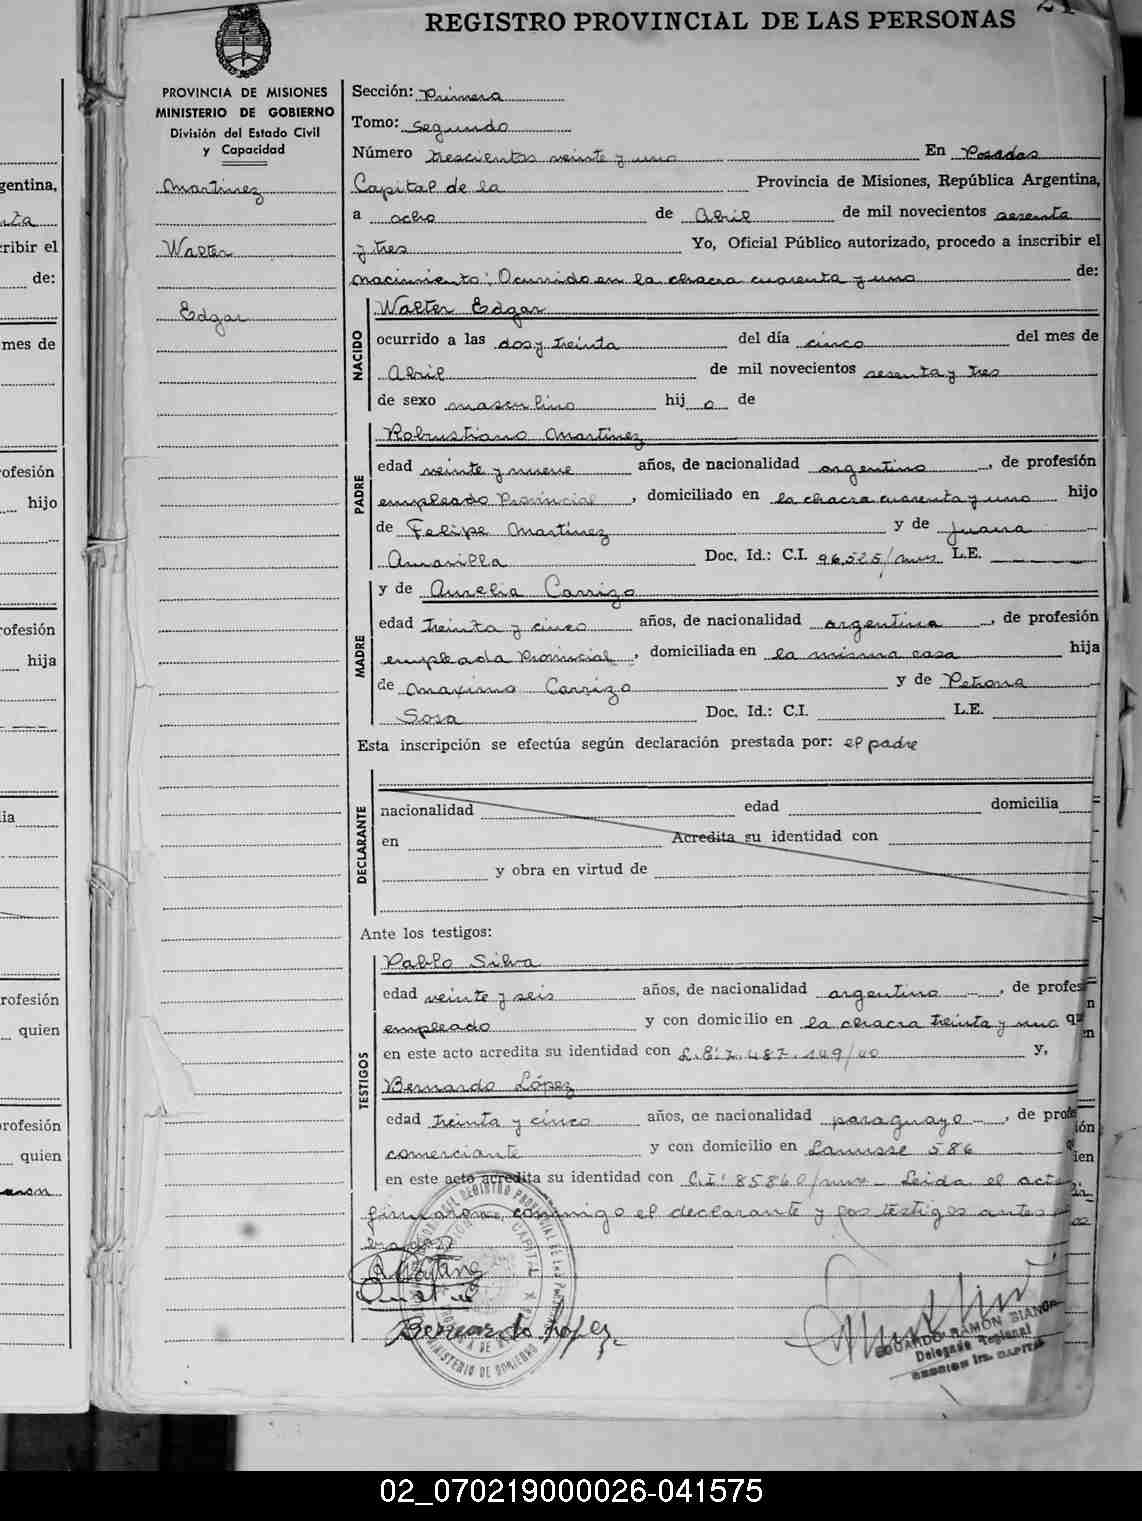 REGISTRO PROVINCIAL DE LAS PERSONAS
PROVINCIA DE MISIONES
MINISTERIO DE GOBIERNO
División del Estado Civil
y Capacidad
Martinez
Walter
Edgar
Sección: Primera
Tomo: Segundo
Número trescientos veinte y uno En Posadas
Capital de la Provincia de Misiones, República Argentina,
a ocho de Abril de mil novecientos sesenta
y tres Yo, Oficial Público autorizado, procedo a inscribir el
nacimiento: Ocurrido en la chacra cuarenta y uno de:
NACIDO
Walter Edgar
ocurrido a las dos y treinta del día cinco del mes de
Abril de mil novecientos sesenta y tres
de sexo masculino hijo de
PADRE
Robustiano Martínez
edad veinte y nueve años, de nacionalidad argentino, de profesión
empleado Provincial, domiciliado en la chacra cuarenta y uno hijo
de Felipe Martínez y de Juana
Amarilla Doc. Id.: C.I. 96.525/mnes L.E.
y de Aurelia Carrizo
MADRE
edad treinta y cinco años, de nacionalidad argentina, de profesión
empleada Provincial, domiciliada en la misma casa hija
de Maximo Carrizo y de Petrona
Sosa Doc. Id.: C.I. L.E.
Esta inscripción se efectúa según declaración prestada por: el padre
DECLARANTE
nacionalidad edad domicilia
en Acredita su identidad con
y obra en virtud de
Ante los testigos:
TESTIGOS
Pablo Silva
edad veinte y seis años, de nacionalidad argentino, de profes
empleado y con domicilio en la chacra treinta y uno
en este acto acredita su identidad con L.E: 7.487.149/40 y,
Bernardo López
edad treinta y cinco años, de nacionalidad paraguayo, de profe
comerciante y con domicilio en Lanusse 586
en este acto acredita su identidad con C.I: 85860/mnes_ Leida el acta
firmaron conmigo el declarante y los testigos antes
Bernardo Lopez
EDUARDO RAMÓN BIANCO
Delegado Regional
CAPITAL
MINISTERIO DE GOBIERNO
gentina,
cribir el
de:
mes de
rofesión
hijo
rofesión
hija
ia
rofesión
quien
rofesión
quien
02_070219000026-041575